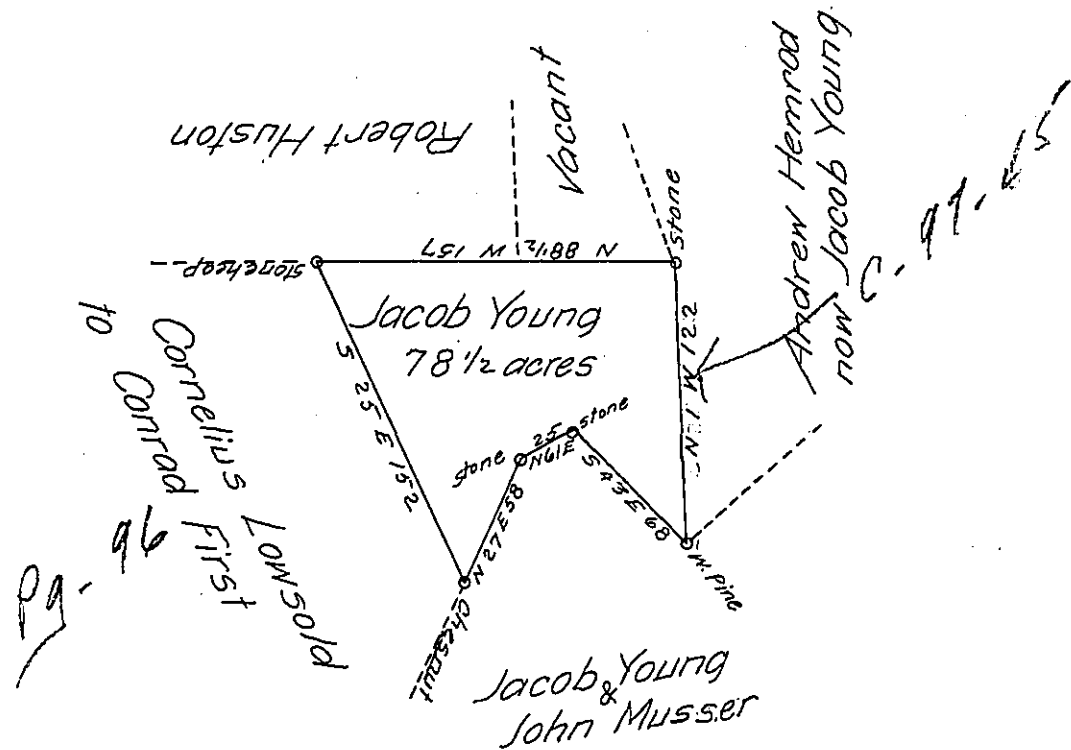 Robert Huston
Vacant
Andrew Hemrod
now Jacob Young
C. 97.
stone
N 88 1/2 W 157
stoneheap
Jacob Young
78 1/2 acres
N 1 W 122
S 25 E 152
stone
25
N61E
stone
S 43 E 68
N 27 E 58
W. Pine
Chesnut
Cornelius Low sold
to Conrad First
Pg. 96
Jacob Young
&
John Musser